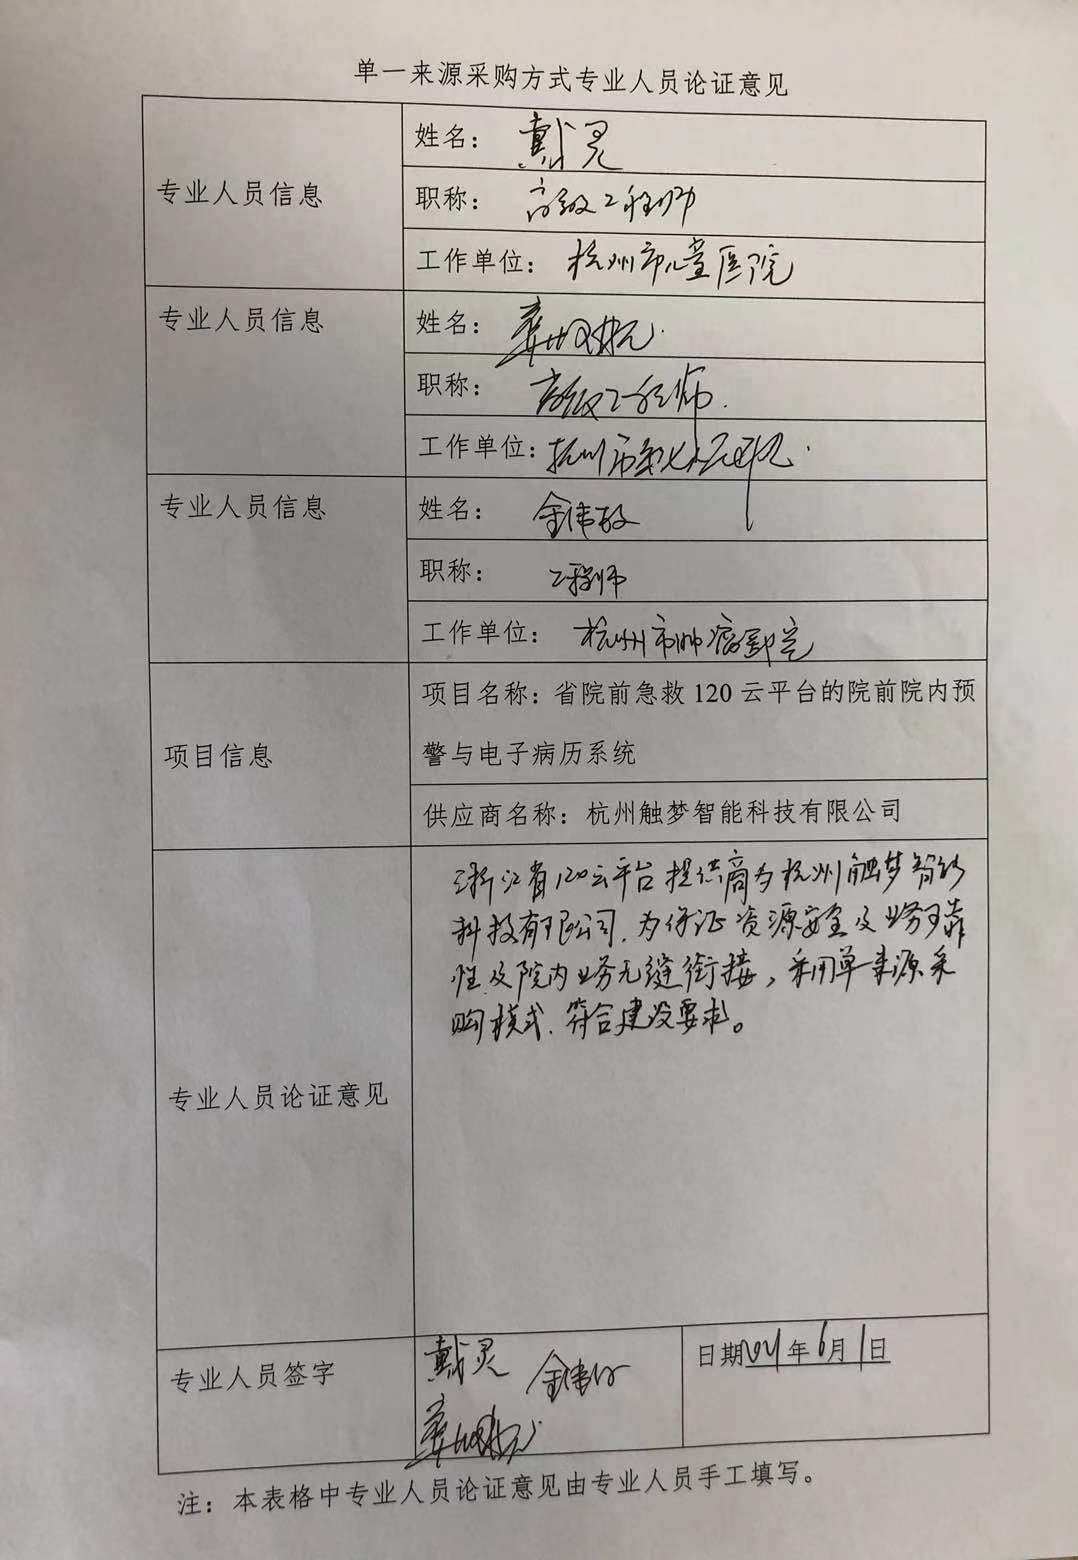 单一来源采购方式专业人员论证意见
专业人员信息
姓名： 戴灵
职称： 高级工程师
工作单位： 杭州市儿童医院
专业人员信息
姓名：
职称： 高级工程师
工作单位： 杭州市第七人民医院
专业人员信息
姓名： 金伟
职称： 工程师
工作单位： 杭州市肿瘤医院
项目信息
项目名称：省院前急救 120 云平台的院前院内预
警与电子病历系统
供应商名称：杭州触梦智能科技有限公司
专业人员论证意见
浙江省120云平台提供商为杭州触梦智能
科技有限公司，为保证资源安全及业务可靠
性及院内业务无缝衔接，采用单一来源采
购模式，符合建设要求。
专业人员签字
戴灵 金伟
日期2021年6月1日
注：本表格中专业人员论证意见由专业人员手工填写。